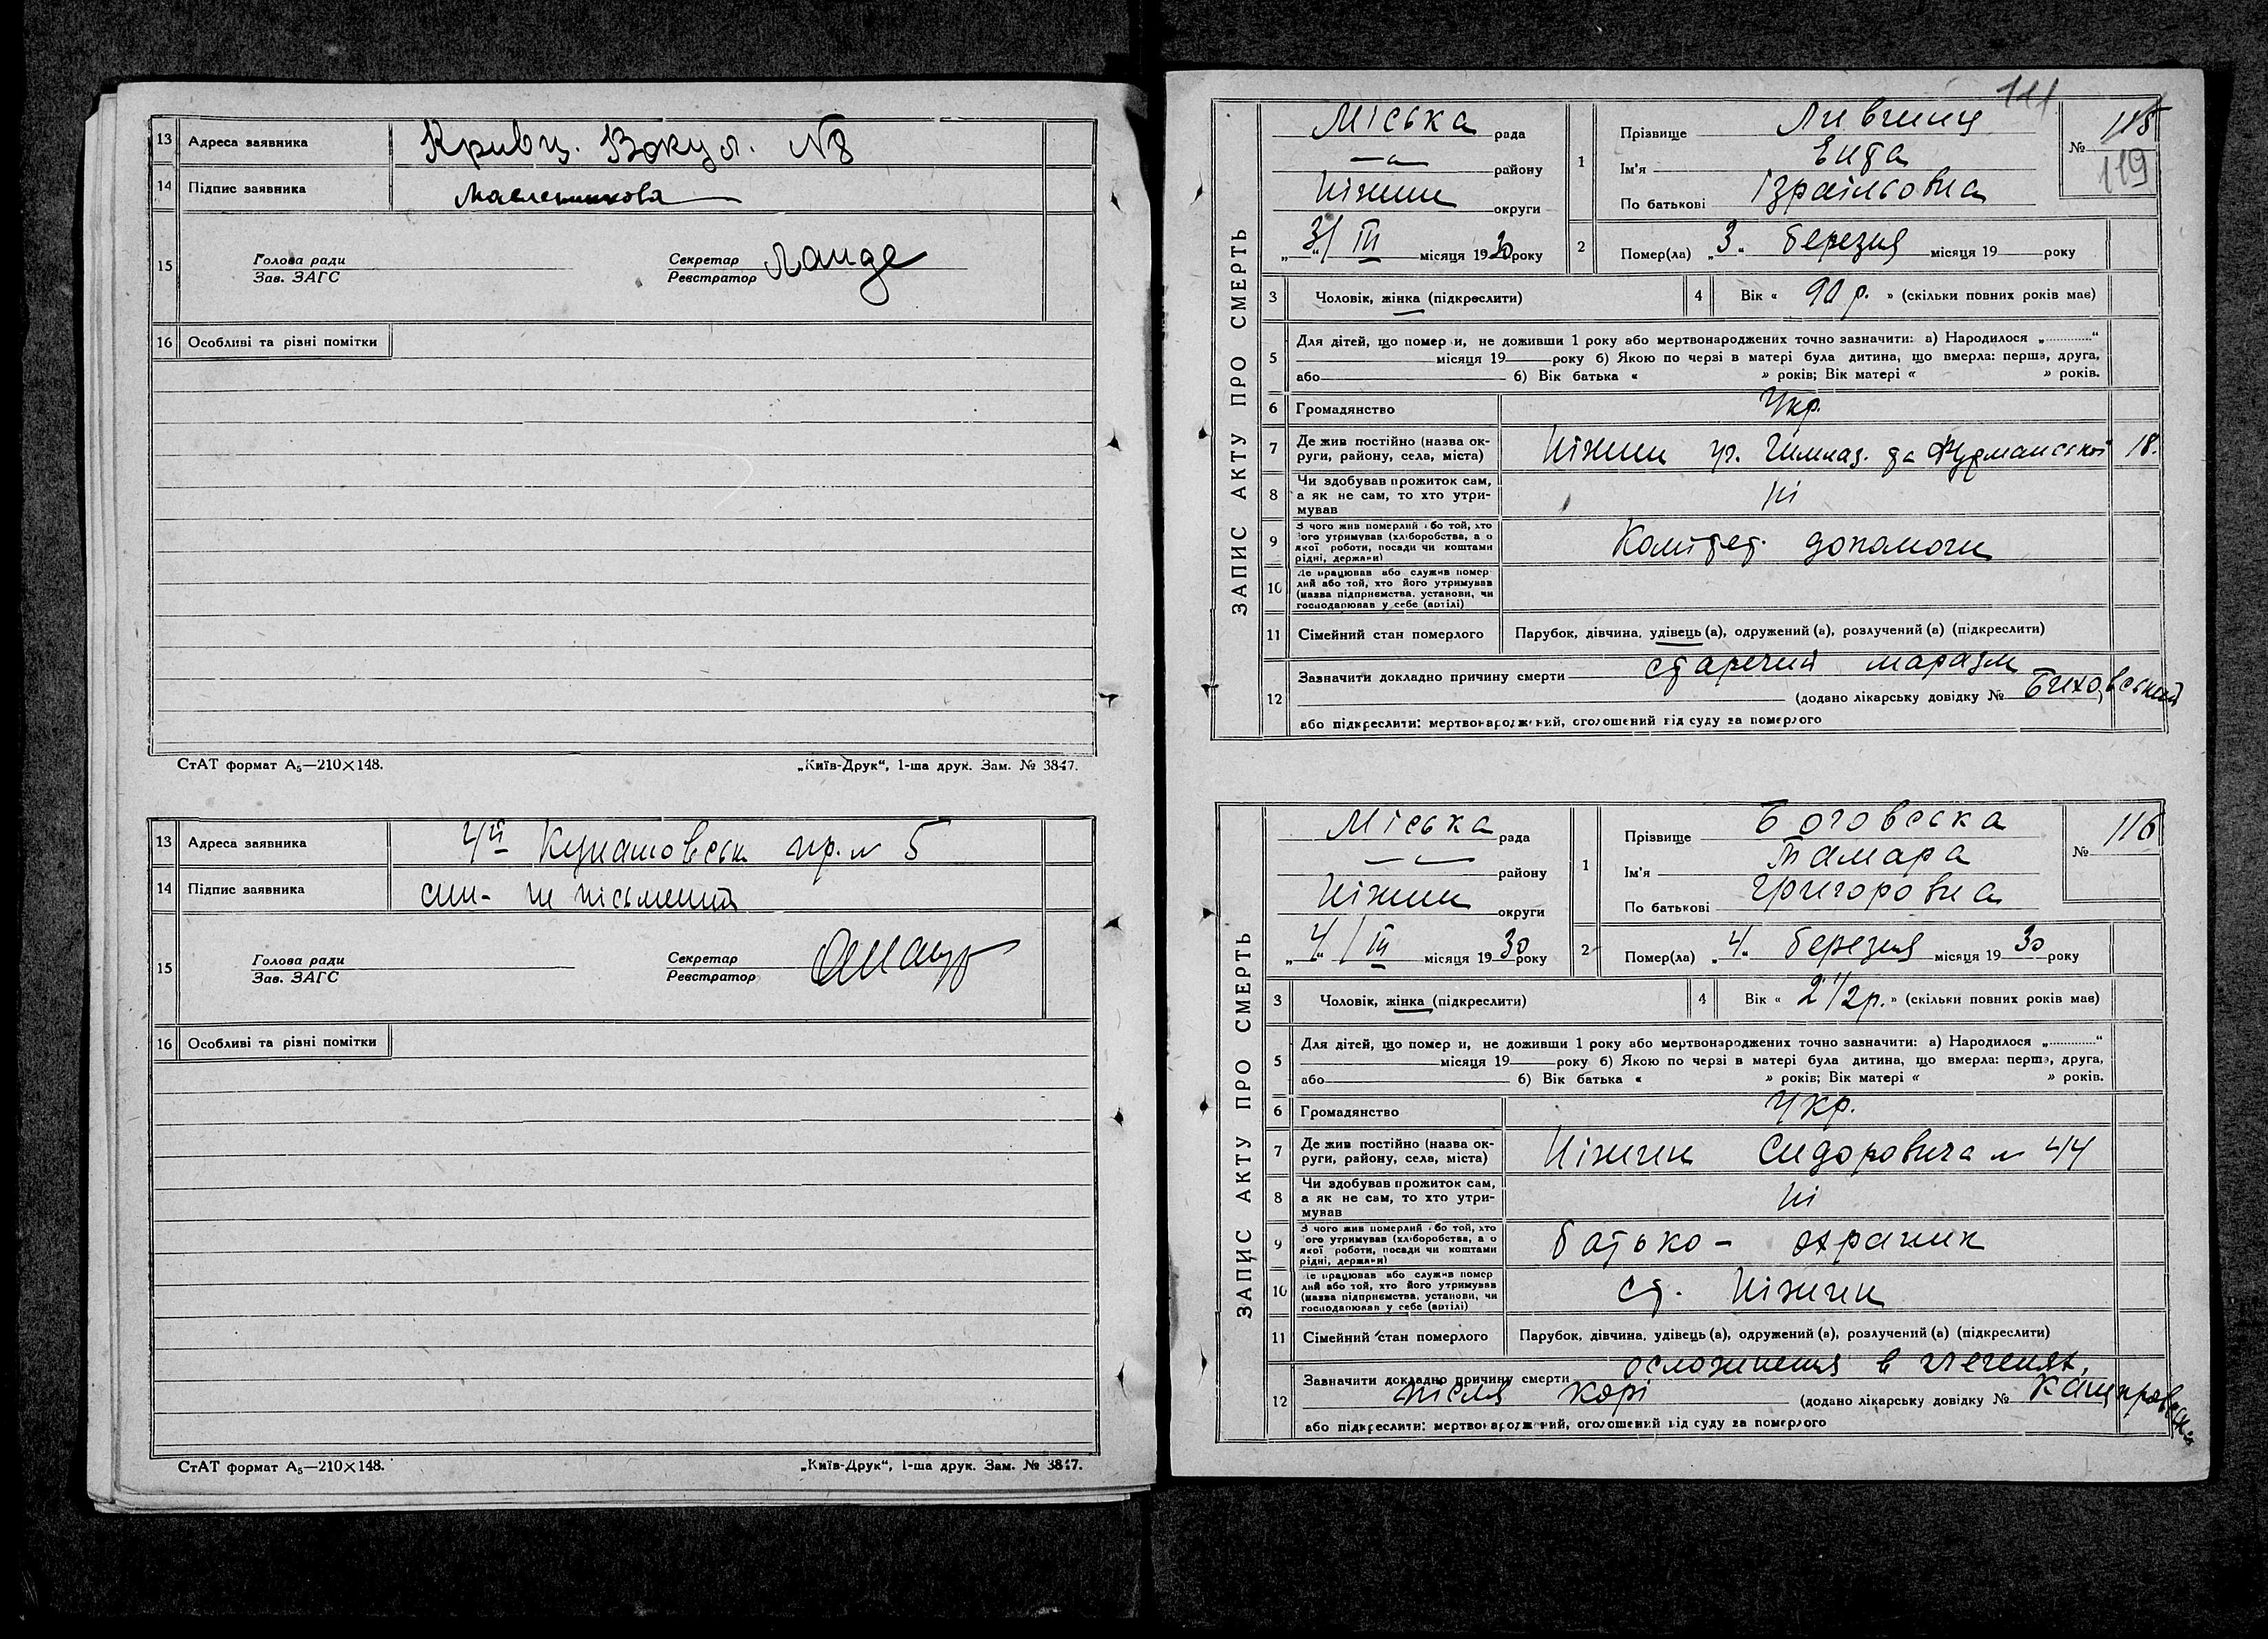 13 Адреса заявника Кривц. Вокул. № 8
14 Підпис заявника Масленникова
15 Голова ради Зав. ЗАГС Секретар Реєстратор Ланде
16 Особливі та різні помітки
СтАТ формат А₅—210×148. „Київ-Друк“, 1-ша друк. Зам. № 3847.
13 Адреса заявника 4й пр. № 5
14 Підпис заявника син - не письмений
15 Голова ради Зав. ЗАГС Секретар Реєстратор
16 Особливі та різні помітки
СтАТ формат А₅—210×148. „Київ-Друк“, 1-ша друк. Зам. № 3847.
111
ЗАПИС АКТУ ПРО СМЕРТЬ
Міська рада
—„— району
Ніжин округи
„3“/III місяця 1930 року
1 Прізвище Лившиц
Ім'я
По батькові Ізраільовна
№ 115
119
2 Помер(ла) „3“ березня місяця 19 року
3 Чоловік, жінка (підкреслити) 4 Вік « 90 р. » (скільки повних років має)
5 Для дітей, що помер и, не доживши 1 року або мертвонароджених точно зазначити: а) Народилося „............“
місяця 19 року б) Якою по черзі в матері була дитина, що вмерла: перша, друга,
або б) Вік батька « » років; Вік матері « » років.
6 Громадянство Укр.
7 Де жив постійно (назва ок-
руги, району, села, міста) Ніжин уг. Гимназ. та 18.
8 Чи здобував прожиток сам,
а як не сам, то хто утри-
мував ні
9 З чого жив померлий або той, хто
його утримував (хліборобства, а о
якої роботи, посади чи коштами
рідні, держави) Комітет допомоги
10 Де працював або служив помер
лий або той, хто його утримував
(назва підприємства, установи, чи
господарював у себе (артілі)
11 Сімейний стан померлого Парубок, дівчина, удівець (а), одружений (а), розлучений (а) (підкреслити)
12 Зазначити докладно причину смерти старечий маразм
(додано лікарську довідку № Биховський)
або підкреслити: мертвонароджений, оголошений від суду за померлого
ЗАПИС АКТУ ПРО СМЕРТЬ
Міська рада
—„— району
Ніжин округи
„4“/III місяця 1930 року
1 Прізвище Боговська
Ім'я Тамара
По батькові Григоровна
№ 116
2 Помер(ла) „4“ березня місяця 1930 року
3 Чоловік, жінка (підкреслити) 4 Вік « 2 1/2 р. » (скільки повних років має)
5 Для дітей, що помер и, не доживши 1 року або мертвонароджених точно зазначити: а) Народилося „............“
місяця 19 року б) Якою по черзі в матері була дитина, що вмерла: перша, друга,
або б) Вік батька « » років; Вік матері « » років.
6 Громадянство Укр.
7 Де жив постійно (назва ок-
руги, району, села, міста) Ніжин Сидоровича № 44
8 Чи здобував прожиток сам,
а як не сам, то хто утри-
мував ні
9 З чого жив померлий або той, хто
його утримував (хліборобства, а о
якої роботи, посади чи коштами
рідні, держави) батько - охраник
10 Де працював або служив помер
лий або той, хто його утримував
(назва підприємства, установи, чи
господарював у себе (артілі) ст. Ніжин
11 Сімейний стан померлого Парубок, дівчина, удівець (а), одружений (а), розлучений (а) (підкреслити)
12 Зазначити докладно причину смерти осложнення в легенях,
після корі (додано лікарську довідку №
або підкреслити: мертвонароджений, оголошений від суду за померлого